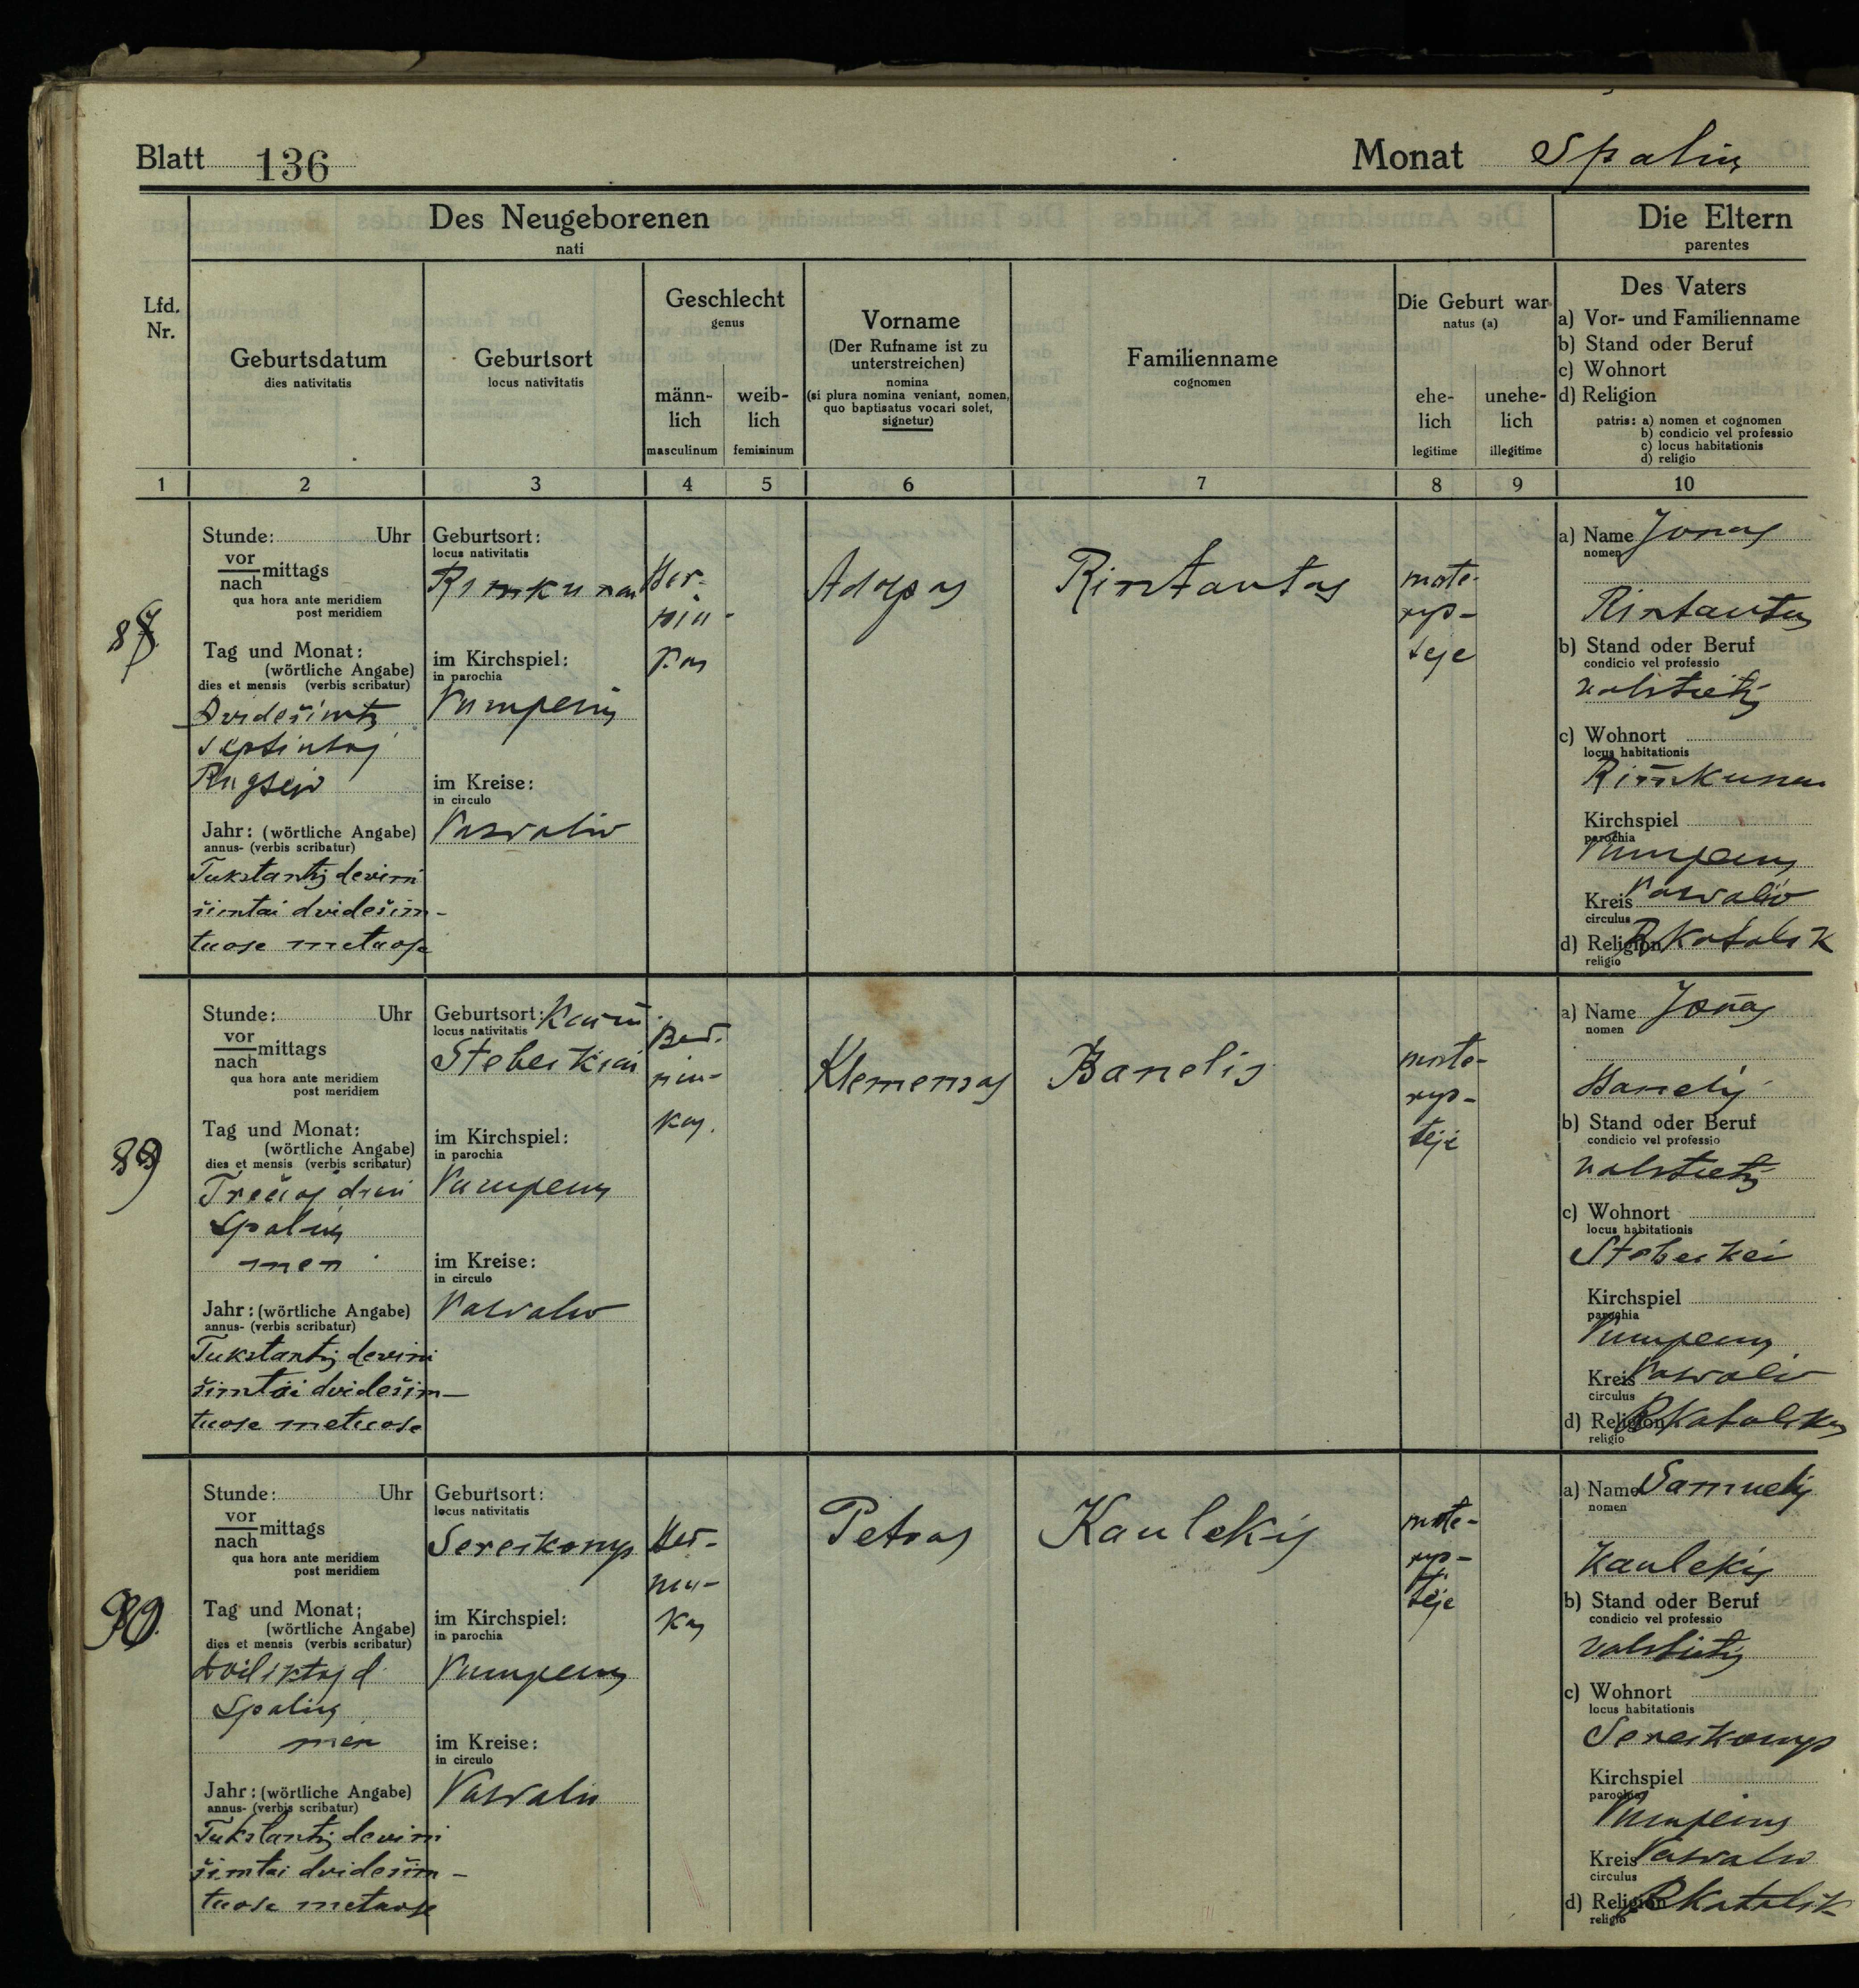 Blatt 136
Monat Spalių
Des Neugeborenen
nati
Die Eltern
parentes
Lfd.
Nr.
Geburtsdatum
dies nativitatis
Geburtsort
locus nativitatis
Geschlecht
genus
männ-
lich
masculinum
weib-
lich
femininum
Vorname
(Der Rufname ist zu
unterstreichen)
nomina
(si plura nomina veniant, nomen,
quo baptisatus vocari solet,
signetur)
Familienname
cognomen
Die Geburt war
natus (a)
ehe-
lich
legitime
unehe-
lich
illegitime
Des Vaters
a) Vor- und Familienname
b) Stand oder Beruf
c) Wohnort
d) Religion
patris: a) nomen et cognomen
b) condicio vel professio
c) locus habitationis
d) religio
1 2 3 4 5 6 7 8 9 10
Stunde: Uhr
vor
nach mittags
qua hora ante meridiem
post meridiem
Tag und Monat:
(wörtliche Angabe)
dies et mensis (verbis scribatur)
Dvidešimtą
septintoj
Rugsėjo
Jahr: (wörtliche Angabe)
annus- (verbis scribatur)
Tukstantį devini
šimtai dvidešim-
tuose metuose
Geburtsort:
locus nativitatis
Rimkunai
im Kirchspiel:
in parochia
Pumpenų
im Kreise:
in circulo
Pasvalio
Ber-
niu-
kas
Adolpas
Rintautas
mote-
rys-
teje
a) Name Jonas
nomen
Rintautas
b) Stand oder Beruf
condicio vel professio
valstietis
c) Wohnort
locus habitationis
Rimkunai
Kirchspiel
parochia
Pumpenų
Kreis Pasvalio
circulus
d) Religion R Katalik
religio
89
Stunde: Uhr
vor
nach mittags
qua hora ante meridiem
post meridiem
Tag und Monat:
(wörtliche Angabe)
dies et mensis (verbis scribatur)
Trečioj dien
Spalių
men
Jahr: (wörtliche Angabe)
annus- (verbis scribatur)
Tukstantį devini
šimtai dvidešim-
tuose metuose
Geburtsort:
locus nativitatis
Stebeikiai
im Kirchspiel:
in parochia
Pumpenų
im Kreise:
in circulo
Pasvalio
Ber-
niu-
kas.
Klemensas
Banelis
mote-
rys-
tėje
a) Name Jonas
nomen
Banelis
b) Stand oder Beruf
condicio vel professio
valstietis
c) Wohnort
locus habitationis
Stebeikei
Kirchspiel
parochia
Pumpenų
Kreis Pasvalio
circulus
d) Religion R Katalikas
religio
90.
Stunde: Uhr
vor
nach mittags
qua hora ante meridiem
post meridiem
Tag und Monat;
(wörtliche Angabe)
dies et mensis (verbis scribatur)
dviliktoj d.
Spalių
mėn
Jahr: (wörtliche Angabe)
annus- (verbis scribatur)
Tukstantį devini
šimtai dvidešim-
tuose metuose
Geburtsort:
locus nativitatis
Sereikonys
im Kirchspiel:
in parochia
Pumpenų
im Kreise:
in circulo
Pasvalio
Ber-
niu-
kas
Petras
Kaulekis
mote-
rys-
tėje
a) Name Samuelis
nomen
Kaulekis
b) Stand oder Beruf
condicio vel professio
valstietis
c) Wohnort
locus habitationis
Sereikonys
Kirchspiel
parochia
Pumpenų
Kreis Pasvalio
circulus
d) Religion R Katalik
religio